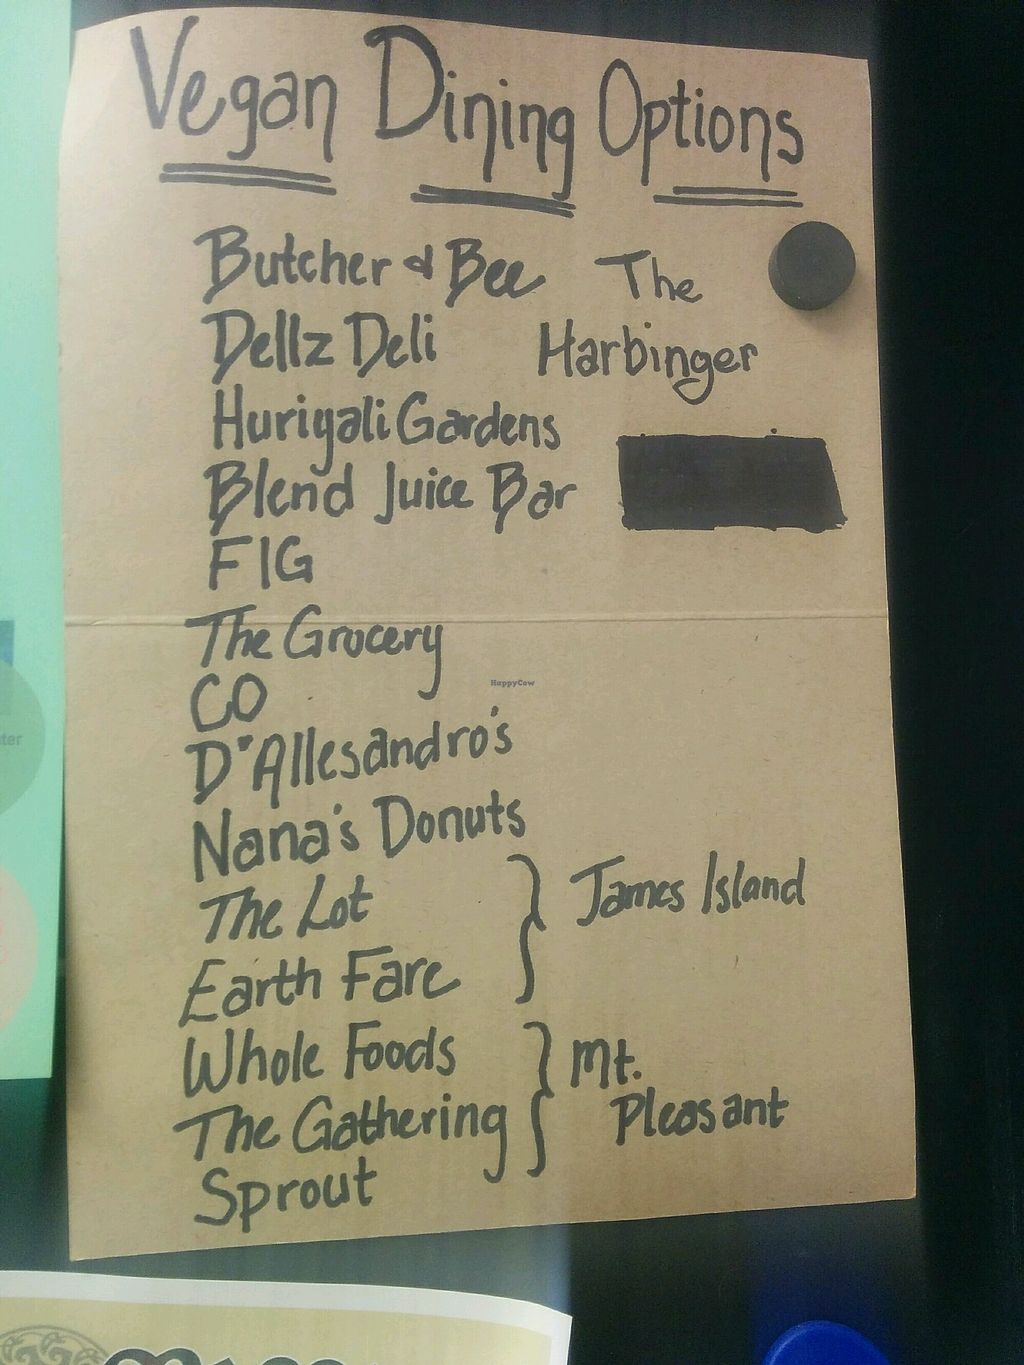 Vegan Dining Options
Butcher & Bee
The
Dellz Deli
Harbinger
Huriyali Gardens
Blend Juice Bar
FIG
The Grocery
HappyCow
CO
D'Allesandro's
Nana's Donuts
The Lot
James Island
Earth Fare
Whole Foods
Mt.
The Gathering
Pleasant
Sprout
ter